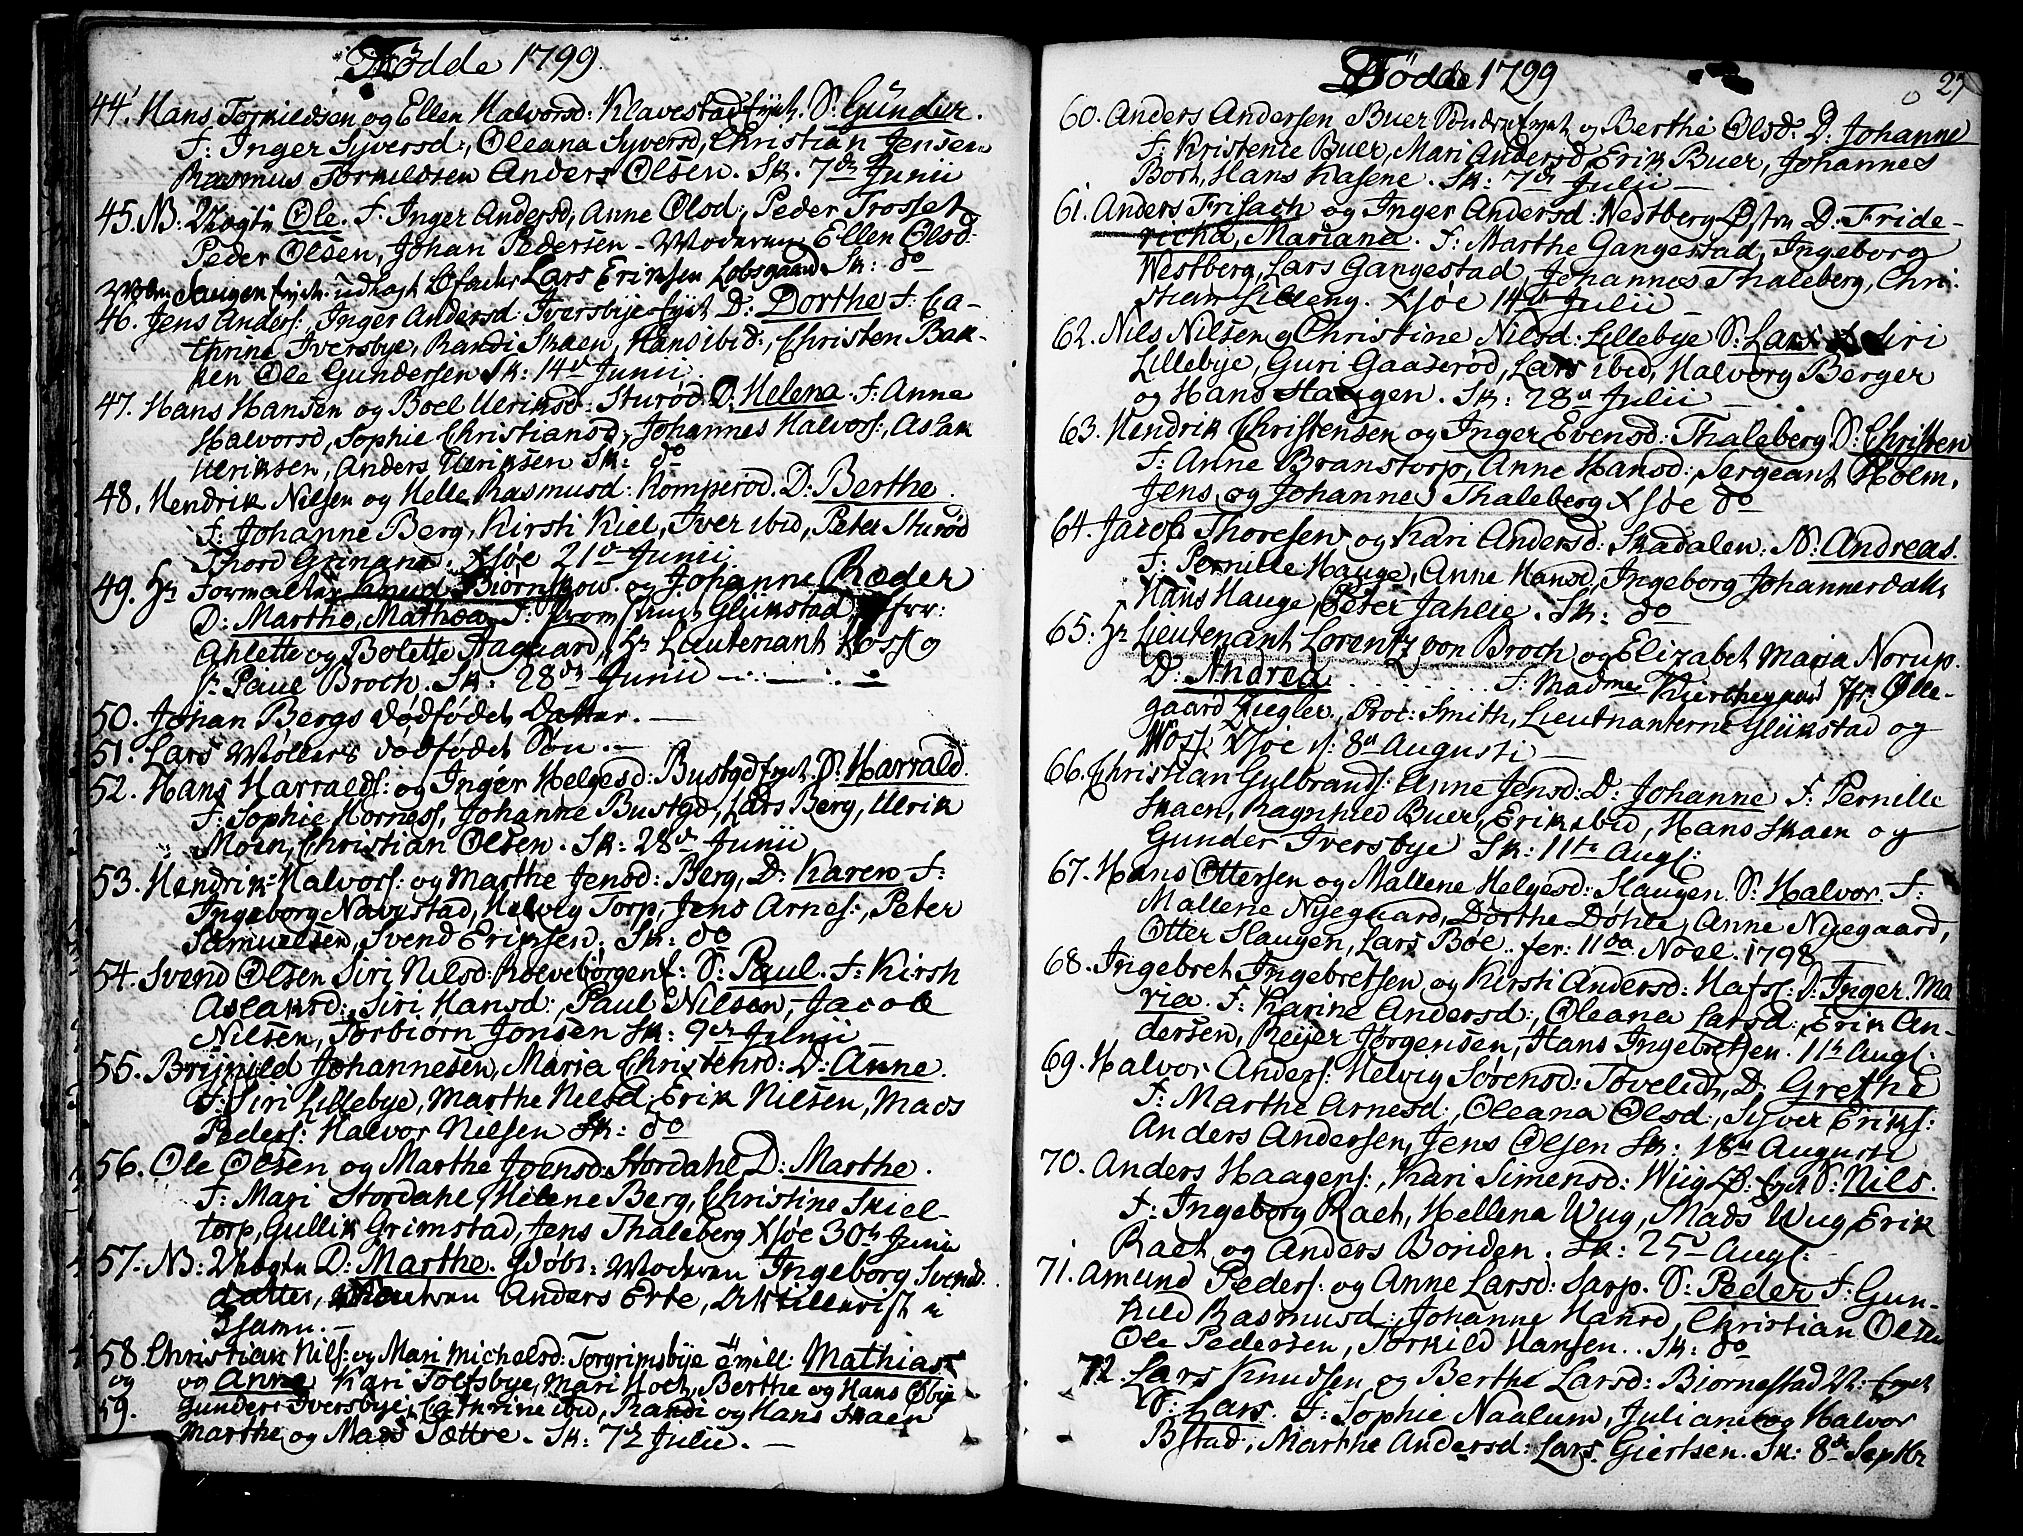 Fødde 1799.
44. Hans Torkildsen og Ellen Halvorsd: Klavestad Eyet. S: Gunder.
F: Inger Syversd:, Oleana Syversd, Christian Jensen
Rasmus Torkildsen Anders Olsen. Sk. 7de Junii
45. NB: Uægte Ole. F: Inger Andersd, Anne Olsd:, Peder Trosset
Peder Olsen, Johan Pedersen - Moderen: Ellen Olsd:
Haugen Eyet. udlagt Lars Eriksen Lobsgaard. Sk: do
46. Jens Anders:, Inger Andersd: Iversbye Eyet D: Dorthe F: Ca-
thrine Iversbye, Randi Skaen, Hans ibid:, Christen Bak-
ken Ole Gundersen Sk: 14de Junii.
47. Hans Hansen og Boel Ulriksd: Sturød. D: Helena. F: Anne
Halvorsd, Sophie Christiansd, Johannes Halvors:, Aslak
Ulriksen, Anders Ulriksen Sk: do
48. Hendrik Nilsen og Helle Rasmusd: Komperød. D: Berthe.
F: Johanne Berg, Kirsti Kiel, Iver ibid, Peter Sturød
Thord Grinane. Xsøe 21de Junii.
49. Hr Formalter Knud Biørnskow og Johanne Ræder
D: Marthe, Mathea. F: Glükstad, Jfrr:
Ahlette og Bolette Aagaard, Hr Lieutenant Woss og
Paul Broch. Sk: 28de Junii
50. Johan Bergs dødfødet Datter.
51. Lars Møllers dødfødet Søn.
52. Hans Harralds: og Inger Helgesd: Bustgd Eyet. S: Harrald.
F: Sophie Horness, Johanne Bustgd, Lars Berg, Ulrik
Moen, Christian Olsen. Sk: 28de Junii
53. Hendrik Halvors: og Marthe Jensd: Berg, D: Karen F:
Ingeborg Navestad, Helvig Torp, Jens Arnes:, Peter
Samuelsen, Svend Eriksen. Sk: do
54. Svend Olsen Siri Nilsd: S: Paul. F: Kirsti
Aslaksd:, Siri Hansd:, Paul Nilsen, Jacob
Nilsen, Torbiørn Jonsen Sk: 9de Junii
55. Brynild Johannesen, Maria Christensd: D: Anne.
F: Siri Lillebye, Marthe Nilsd, Erik Nilsen, Mads
Peders: Halvor Nilsen Sk: do
56. Ole Olsen og Marthe Joensd: Stordahl D: Marthe.
F: Mari Stordahl, Helene Berg, Christine Skiel-
torp, Gullik Grimstad, Jens Thaleberg Xsøe 30te Junii
57. NB: Uægte D: Marthe. Moderen Ingeborg Svends
datter, Anders Erte, Artillerist i
58. Christian Nils: og Mari Michelsd: Torgrimsbye Mathias
og og Anne Kari Tofsbye, Mari Hoel, Berthe og Hans
59. Gunder Iversbye, Cathrine ibid, Randi og Hans Skaen
Marthe og Mads Sættre. Sk: 7de Julii.
Fødde 1799
27
60. Anders Andersen Buer Søndre Eyet og Berthe Olsd: D: Johanne
F: Kristense Buer, Mari Andersd, Erik Buer, Johannes
Bort, Hans Kasene. Sk: 7de Julii
61. Anders Frisach og Inger Andersd: Westberg Østre D: Fride-
richa, Mariana. F: Marthe Gangestad, Ingeborg
Westberg, Lars Gangestad, Johannes Thaleberg, Chri-
stian Lilleng. Xsøe 14de Julii
62. Nils Nilsen og Christine Nilsd: Lillebye S: Lars F: Siri
Lillebye, Guri Gaaserød, Lars ibid, Halvorg Berger
og Hans Haugen. Sk: 28de Julii
63. Hendrik Christensen og Inger Evensd: Thaleberg S: Christen
F: Anne Branstorp, Anne Hansd: Sergeant Holm,
Jens og Johanne Thaleberg Xsøe do
64. Jacob Thoresen og Kari Andersd: Skadalen: S: Andreas.
F: Pernille Hauge, Anne Hansd, Ingeborg Johannesdatt:
Hans Hauge, Peter Jahlie. Sk: do
65. Hr Lieutenant Lorentz von Broch og Elizabet Maria Norup.
D: Andrea F: Madme Kierchegaard Jfr Olle-
gaard Ziegler, Proc: Smith, Lieutnanterne Glükstad og
Woss: Xsøe d: 8de Augusti
66. Christian Gulbrands: Anne Jensd: D: Johanne F: Pernille
Skaen, Ragnhild Buer, Erik ibid, Hans Skaen og
Gunder Iversbye Sk: 11te Augs:
67. Hans Ottersen og Mallene Helgesd: Slaugen. S: Halvor. F:
Mallene Nyegaard, Dorthe Døhle, Anne Nyegaard,
Otter Slaugen, Lars Bøe. fer: 11da Noel. 1798
68. Ingebret Ingebretsen og Kirsti Andersd: Hafs: D: Inger Ma
ria. F: Karine Andersd:, Oleana Larsd:, Erik An-
dersen, Reyer Jørgensen, Hans Ingebretsen. 11te Augs:
69. Halvor Anders: Helvig Sørensd: Tovelid, D: Grethe
F: Marthe Arnesd:, Oleana Olsd, Syver Eriks:
Anders Andersen, Jens Olsen Sk: 18de Augusti
70. Anders Haagens:, Kari Simensd: Wiig Ø: Eyet S: Nils.
F: Ingeborg Raet, Hellena Wug, Mads Wug, Erik
Raet og Anders Boriden. Sk: 25de Augs:
71. Amund Peders: og Anne Larsd: Sarp. S: Peder F: Gun-
hild Rasmusd:, Johanne Hansd, Christian Olsen
Ole Pedersen, Torkild Hansen. Sk: do
72. Lars Knudsen og Berthe Larsd: Biørnestad N: Eyet
S: Lars. F: Sophie Naalum, Juliane og Halvor
Bstad, Marthe Andersd: Lars Giertsen. Sk: 8de Septbr